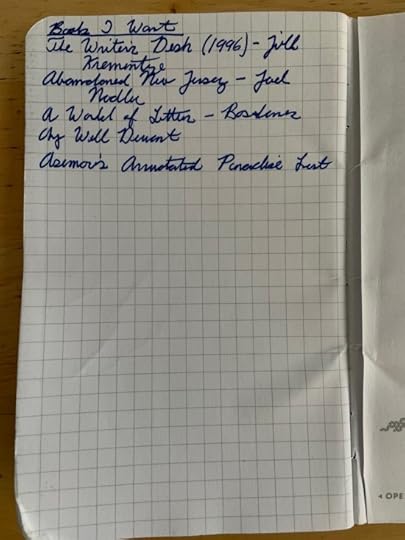 Books I Want
The Writers Desk (1996) - Jill
Krementze
Abandoned New Jersey - Jael
Nodlu
A World of Letters - Basbanes
by Will Durant
Asimov's Annotated Paradise Lost
◂ OPE